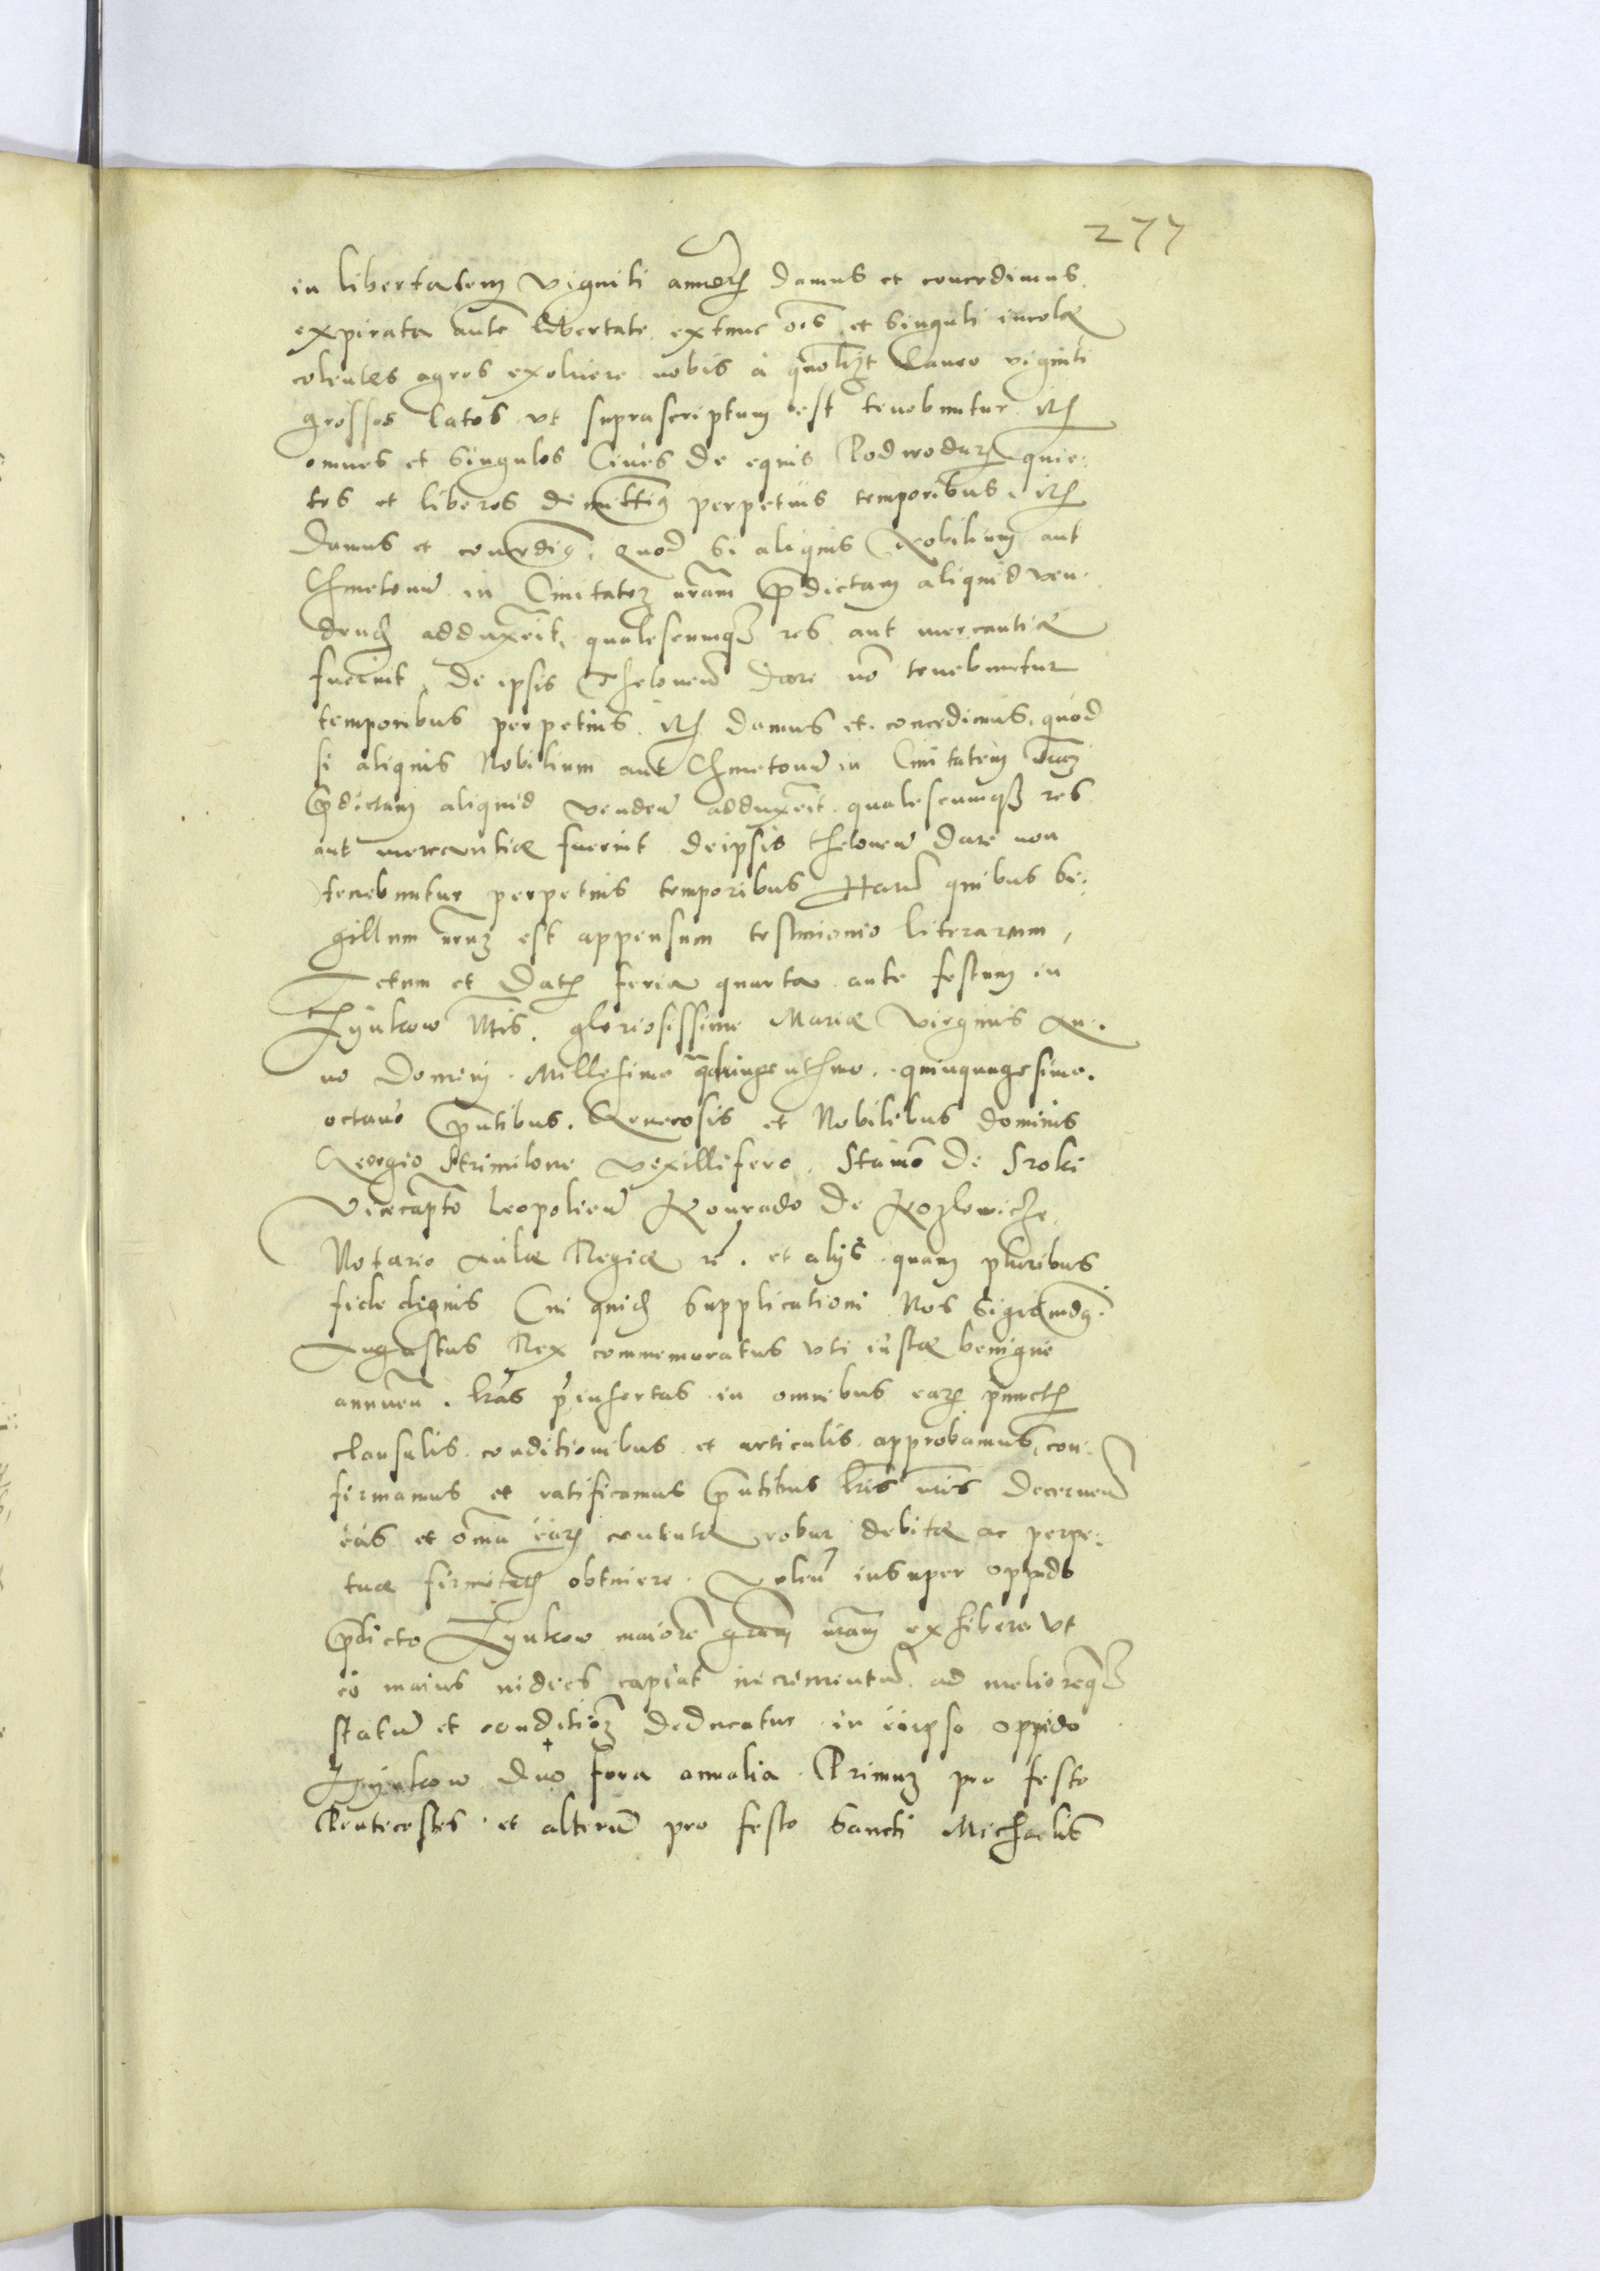 277
in libertatem viginti annoru damus et concedimus.
expirata aute libertate extunc oes et singuli incolæ
colentes agros exolvere nobis à quolibet laneo viginti
grossos latos ut suprascriptum est tenebuntur. Ite
omnes et singulos Cives de equis Podwodaru quie:
tos et liberos demittim9 perpetuis temporibus. Ite
Damus et concedim9. Quod si aliquis Nobilium aut
Chmetonu in Civitatez nram pdictam aliquid ven.
dend adduxerit, qualescumq res aut mercantiæ
fuerint, de ipsis Theloneu dare no tenebuntur
temporibus perpetuis. Ite damus et concedimus, quod
si aliquis Nobilium aut Chmetonu in Civitatem nram
pdictam aliquid venden adduxerit qualescumq res
aut mercantiæ fuerint de ipsis theloneu dare non
tenebuntur perpetuis temporibus Haru quibus Si:
gillum nrum est appensum testimonio literarum,
Actum et Dat feria quarta ante festum in
Zynkow Ntis. gloriosissime Mariæ Virginis An:
no Domini. Millesimo quadringenthmo. quinquagesimo.
octavo pntibus. Generosis et Nobilibus dominis
Georgio Strimilone vexillifero. Stanio de Sroki
Vicecapto Leopolien Konrado de Kozlowicze
Notario Aulæ Regiæ re. et alijs quam pluribus
fide dignis Cui quid supplicationi Nos Sigismud9.
Augustus Rex commemoratus uti iustæ benigne
annuen. lras pinsertas in omnibus earu punctis
clausulis conditionibus et articulis approbamus, con:
firmamus et ratificamus pntibus lris nris decernen
eas et omia earu contenta robur debitæ ac perpe:
tuæ firmitatis obtinere. Volen insuper oppido
pdicto Zynkow maiore gram nram exhibere ut
eo maius indies capiat incrementu ad melioreq
statu et conditioz deducatur in eo ipso oppido
Zynkow duo fora annalia. Primum pro festo
Pentecostes et alteru pro festo Sancti Michaelis